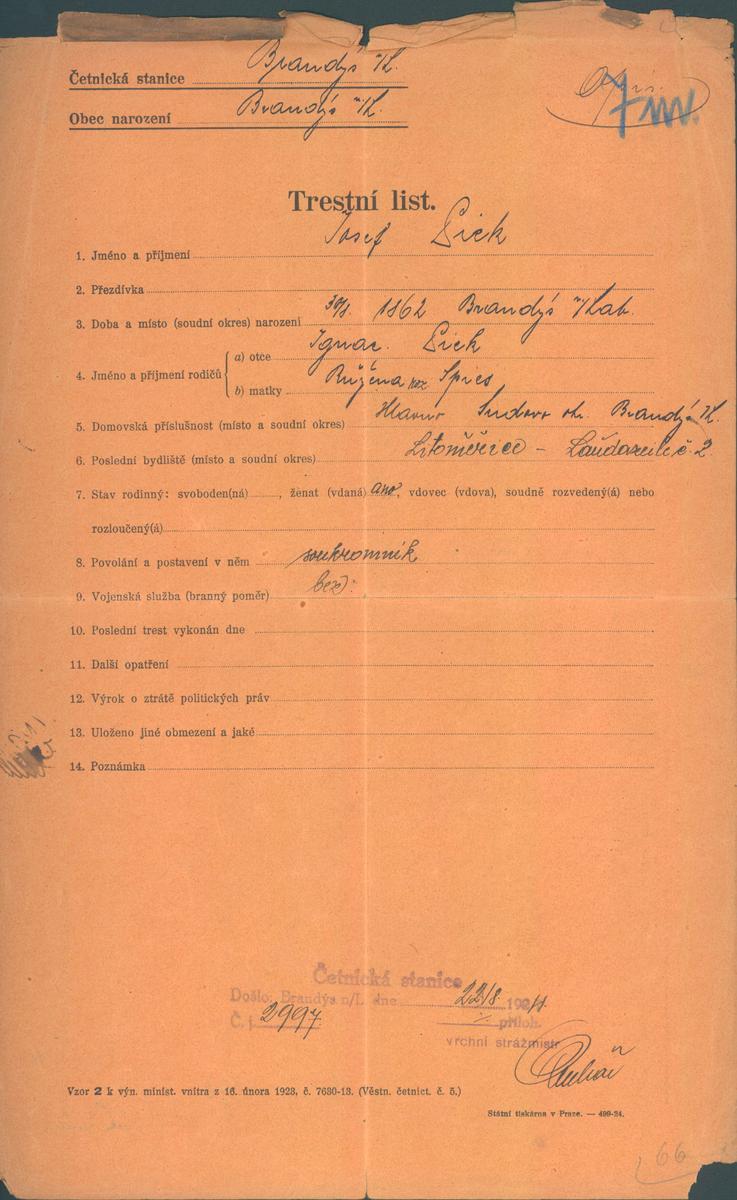 Četnická stanice Brandýs n/L.
Obec narození Brandýs n/L.
7 mv.
Trestní list.
1. Jméno a příjmení Josef Gick
2. Přezdívka
3. Doba a místo (soudní okres) narození 30/8. 1862 Brandýs n/Lab.
4. Jméno a příjmení rodičů
a) otce Ignac. Gick
b) matky Růžena roz Spies
5. Domovská příslušnost (místo a soudní okres) Hlavno Sudovo ok. Brandýs n/L.
6. Poslední bydliště (místo a soudní okres) Litoměřice - č. 2
7. Stav rodinný: svoboden(ná) , ženat (vdaná) ano, vdovec (vdova), soudně rozvedený(á) nebo
rozloučený(á)
8. Povolání a postavení v něm soukromník
9. Vojenská služba (branný poměr) bez.
10. Poslední trest vykonán dne
11. Další opatření
12. Výrok o ztrátě politických práv
13. Uloženo jiné obmezení a jaké
14. Poznámka
Četnická stanice
Došlo: Brandýs n/L dne 22/8 192
Č. j. 2997 příloh.
vrchní strážmistr
Vzor 2 k výn. minist. vnitra z 16. února 1923, č. 7630-13. (Věstn. četnict. č. 5.)
Státní tiskárna v Praze. — 499-24.
66